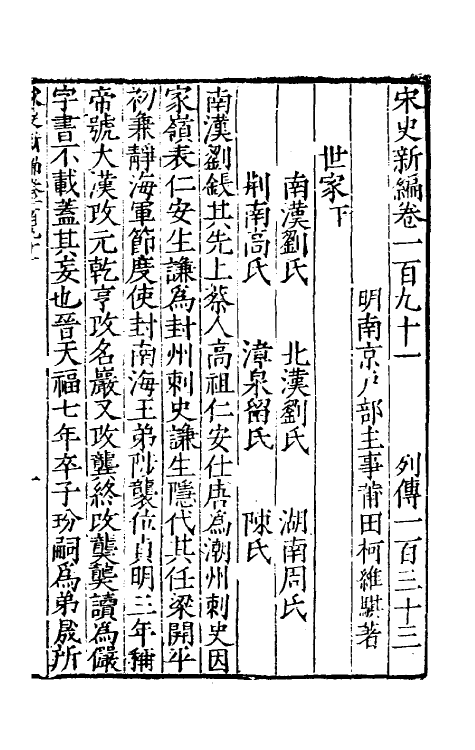 宋史新編卷一百九十一 列傳一百三十三
明南京戶部主事莆田柯維騏著
世家下
南漢劉氏 北漢劉氏 湖南周氏
荆南高氏 漳泉留氏 陳氏
南漢劉鋹其先上蔡人高祖仁安仕唐為潮州刺史因
家嶺表仁安生謙為封州刺史謙生隱代其任梁開平
初兼靜海軍節度使封南海王弟陟襲位貞明三年稱
帝號大漢改元乾亨改名巖又改龔終改龑龑讀為儼
字書不載蓋其妄也晉天福七年卒子玢嗣為弟晟所
宋史新編卷一百九十一 一